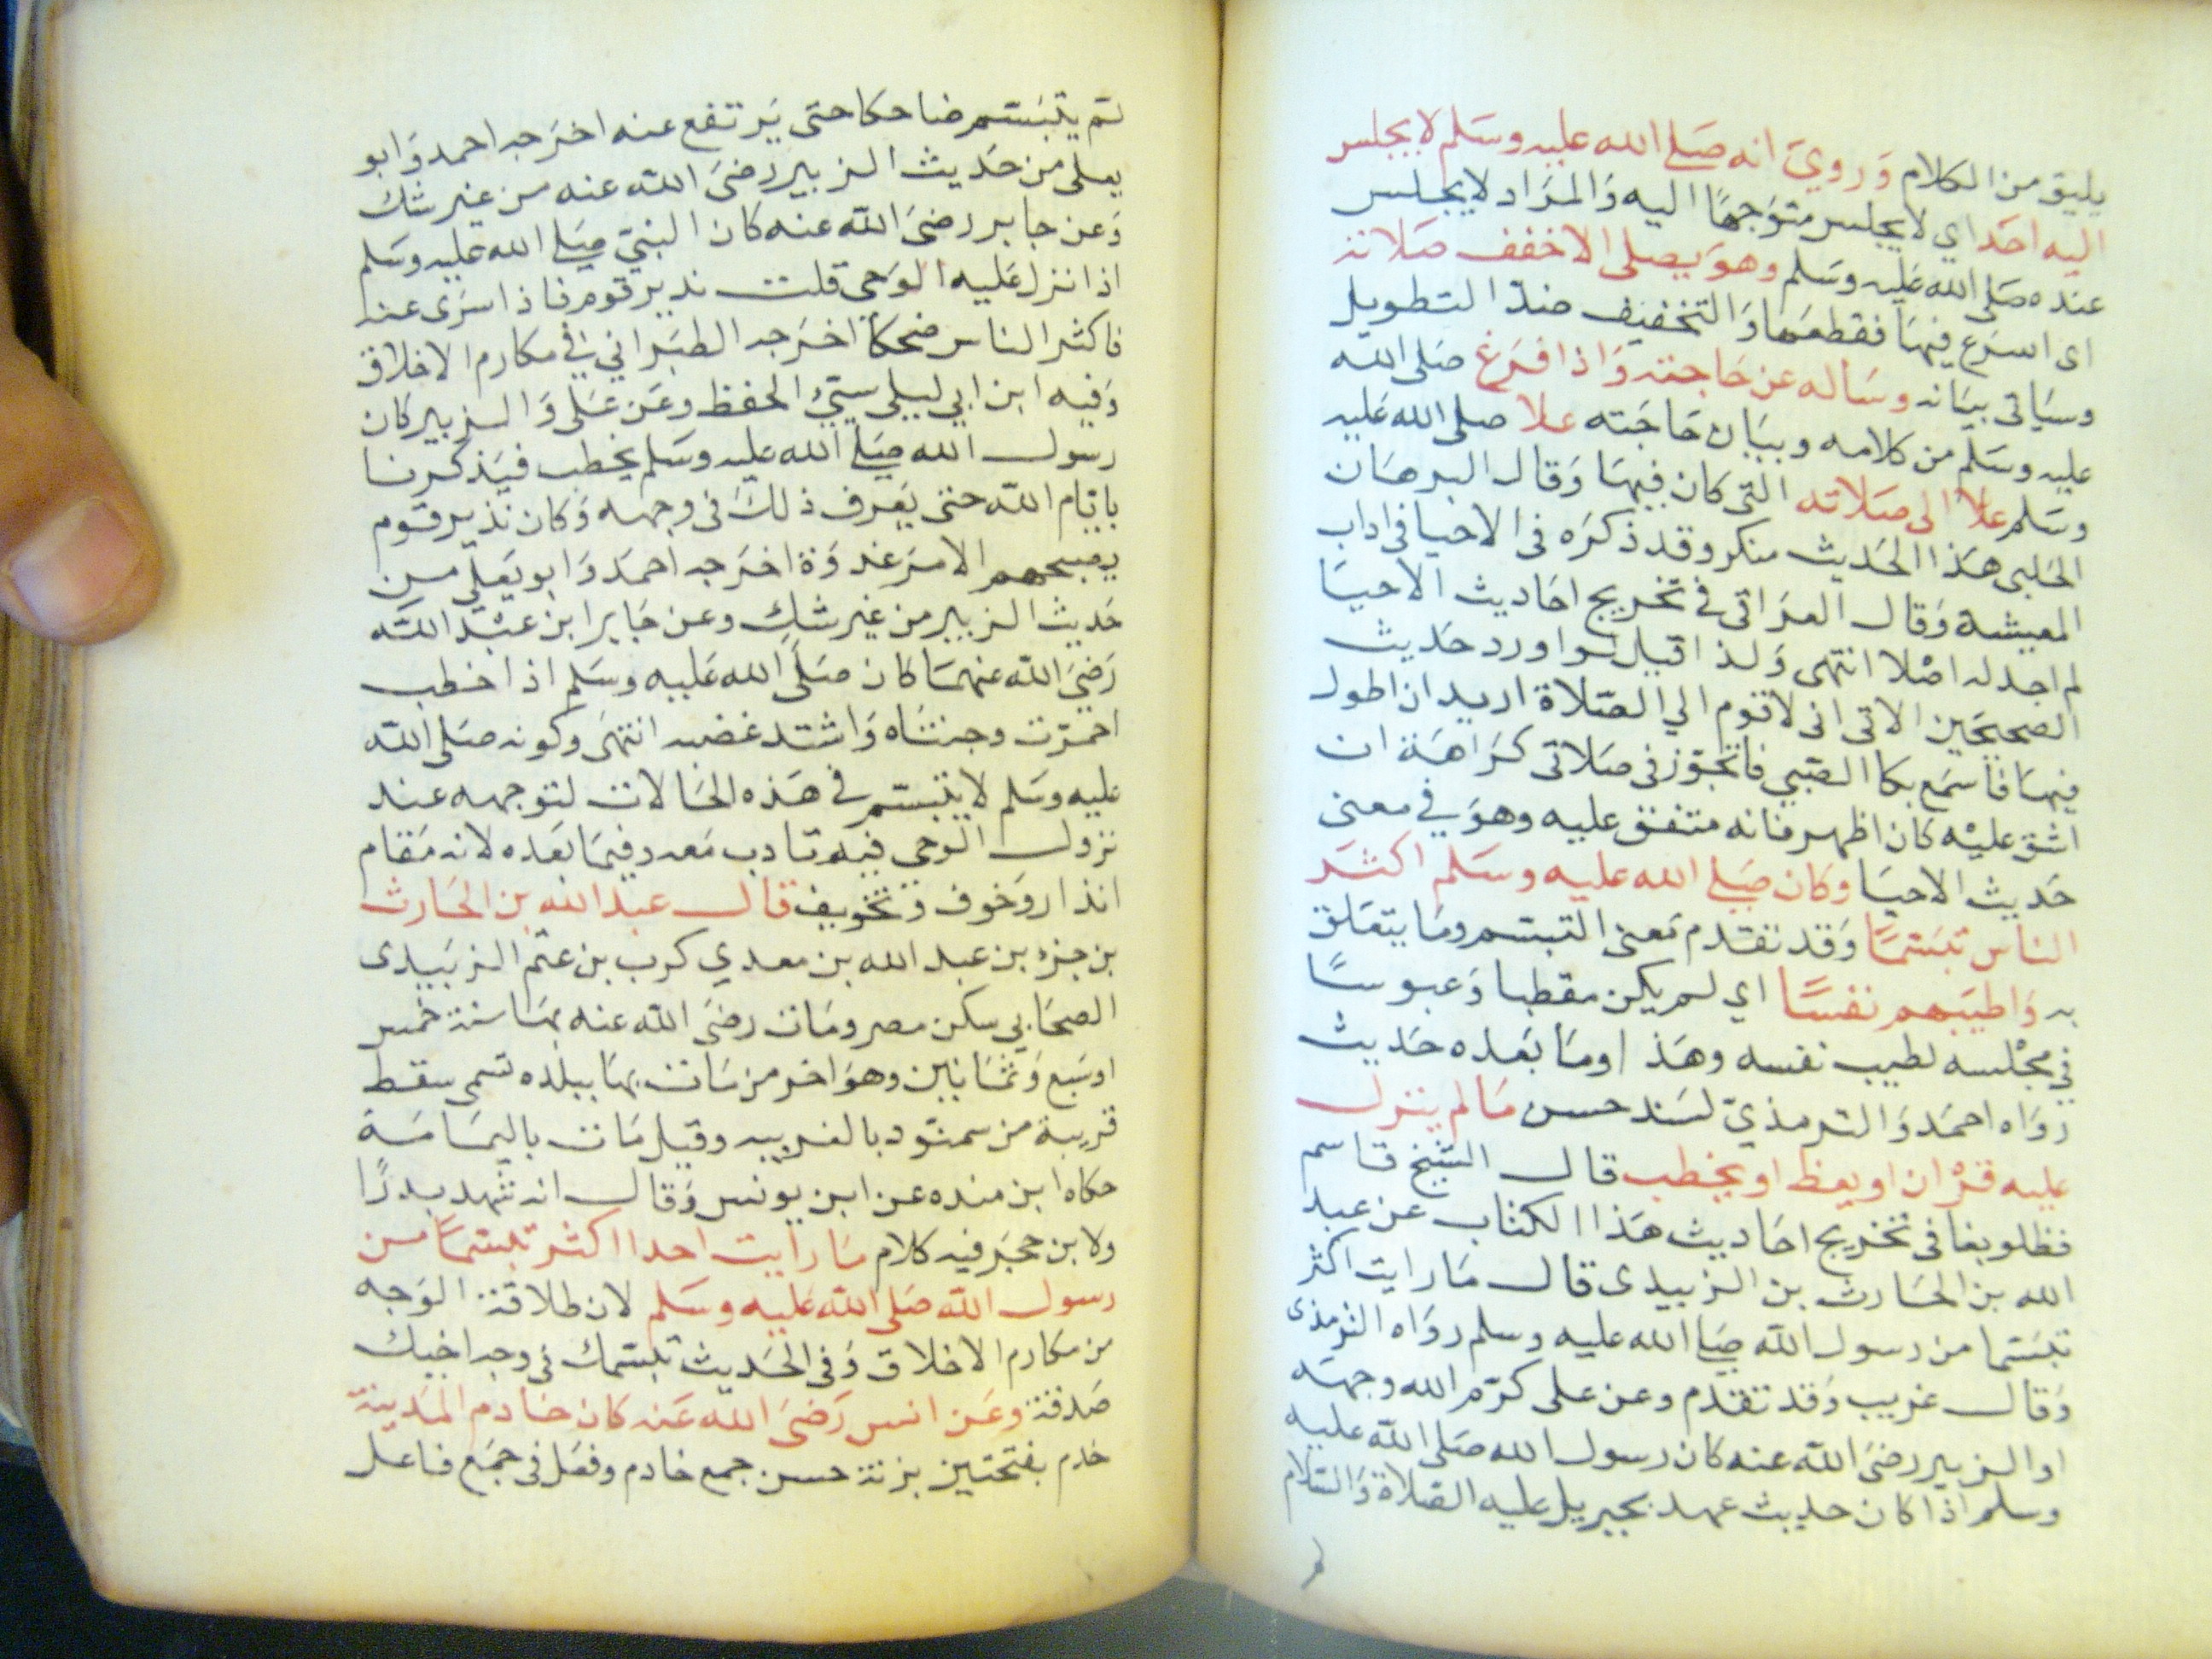 يليق من الكلام وَرويَ انه صَلى الله عليه وسَلم لا يجلس
اليه احَد اي لا يجلس متوَجهًا اليه وَالمرَاد لا يجلس
عنده صَلى الله عَليه وسَلم وهوَ يصلى الا خفف صَلاته
اى اسرَع فيهَا فقطعهَا وَالتخفيف ضدّ التطويل
وسيَاتى بيَانه وسَاله عن حَاجته وَاذا فرَغ صَلى الله
عليه وسَلم من كلامه وبيَان حَاجَته علا صلى الله عَليه
وسَلم علا الى صَلاته التى كان فيهَا وَقال البرهَان
الحَلبى هذَا الحَديث منكر وقد ذكرَه فى الاحيا فى اداب
المعيشة وَقال العرَاقى في تخريج احَاديث الاحيَا
لم اجد له اصْلا انتهى وَلذا قيل لو اورد حَديث
الصحيحَين الاتى انى لاقوم الي الصّلاة اريد ان اطول
فيهَا فاسمَع بكا الصّبي فاتجَوّز فى صَلاتى كرَاهَة ان
اشق عليْه كان اظهر فانه متفق عليه وهوَ في معنى
حَديث الاحيَا وكان صَلى الله عليه وسَلم اكثَر
الناس تبَسّمًا وَقد تقدم مَعنى التبسّم ومَا يتعَلق
به وَاطيَبهم نفسًا اي لم يكن مقطبا وَعبوسًا
في مجْلسه لطيب نفسه وهَذا ومَا بَعده حَديث
روَاه احمَد وَالترمذيّ لسَند حسن مَا لم ينزل
عليه قرْان او يعظ او يخطب قال الشيخ قاسم
قطلوبغا فى تخريج احَاديث هَذا الكتاب عن عبد
الله بن الحَارث بن الزبيدى قال مَا رايت اكثر
تبَسّما من رسول الله صَلى الله عليه وسلم روَاه الترمذى
وَقال غريب وَقد تقدم وعن على كرّم الله وجهَه
او الزبير رضىَ الله عنه كان رسول الله صَلى الله عليه
وسلم اذا كان حديث عهد بجبريل عليه الصّلاة وَالسّلام
لم يتبسّم ضاحكا حتى يَرتفع عنه اخرَجه احمد وَابو
يعلى من حَديث الزبير رضىَ الله عنه من غير شك
وَعن جابر رضىَ الله عنه كان النبىّ صَلى الله عليه وسَلم
اذا نزل عَليه الوَحي قلت نذير قوم فاذا سرَى عنه
فاكثر الناس ضحكا اخرَجه الطبَراني في مكارم الاخلاق
وَفيه ابن ابي ليلى سيّئ الحفظ وعَن عَلى وَالزبير كان
رسول الله صَلى الله عليه وسَلم يخطب فيَذكرنا
بايّام الله حتى يَعرف ذلكَ فى وجهه وَكان نذير قوم
يصبحهم الامرَ غدوَة اخرَجه احمَد وَابو يَعلى من
حَديث الزبير من غير شك وعن جَابر ابن عبْد الله
رَضىَ الله عنهمَا كان صَلى الله عَليه وسَلم اذا خطب
احمرّت وجنتَاه وَاشتد غضبه انتهَى وكونه صَلى الله
عليه وسَلم لا يتبسّم في هَذه الحَالات لتوجهه عند
نزول الوحي فيه تادب مَعه وفيمَا بَعده لانه مَقام
انذار وَخوف وَتخويف قال عبد الله بن الحَارث
بن جزء بن عبد الله بن معدي كرب بن عثم الزبَيدى
الصحَابي سكن مصر ومَات رضىَ الله عنه بهَا سنة خمس
او سَبع وَثمَانين وهوَ اخر من مَات بهَا ببلده تسمى سقط
قريبة من سمنّود بالغربيه وقيل مَات باليمَامَة
حكاه ابن منده عن ابن يونس وَقال انه شهد بدرًا
ولابن حجَر فيه كلام مَا رايت احدا اكثر تبسّمًا من
رسول الله صَلى الله عَليه وسَلم لان طلاقة الوَجه
من مكارم الاخلاق وَفى الحَديث تبسّمك فى وجه اخيك
صَدقة وعَن انس رَضىَ الله عَنه كان خادم المَدينة
خدم بفتحتين بزنة حسن جمع خادم وفعَل فى جمَع فاعل